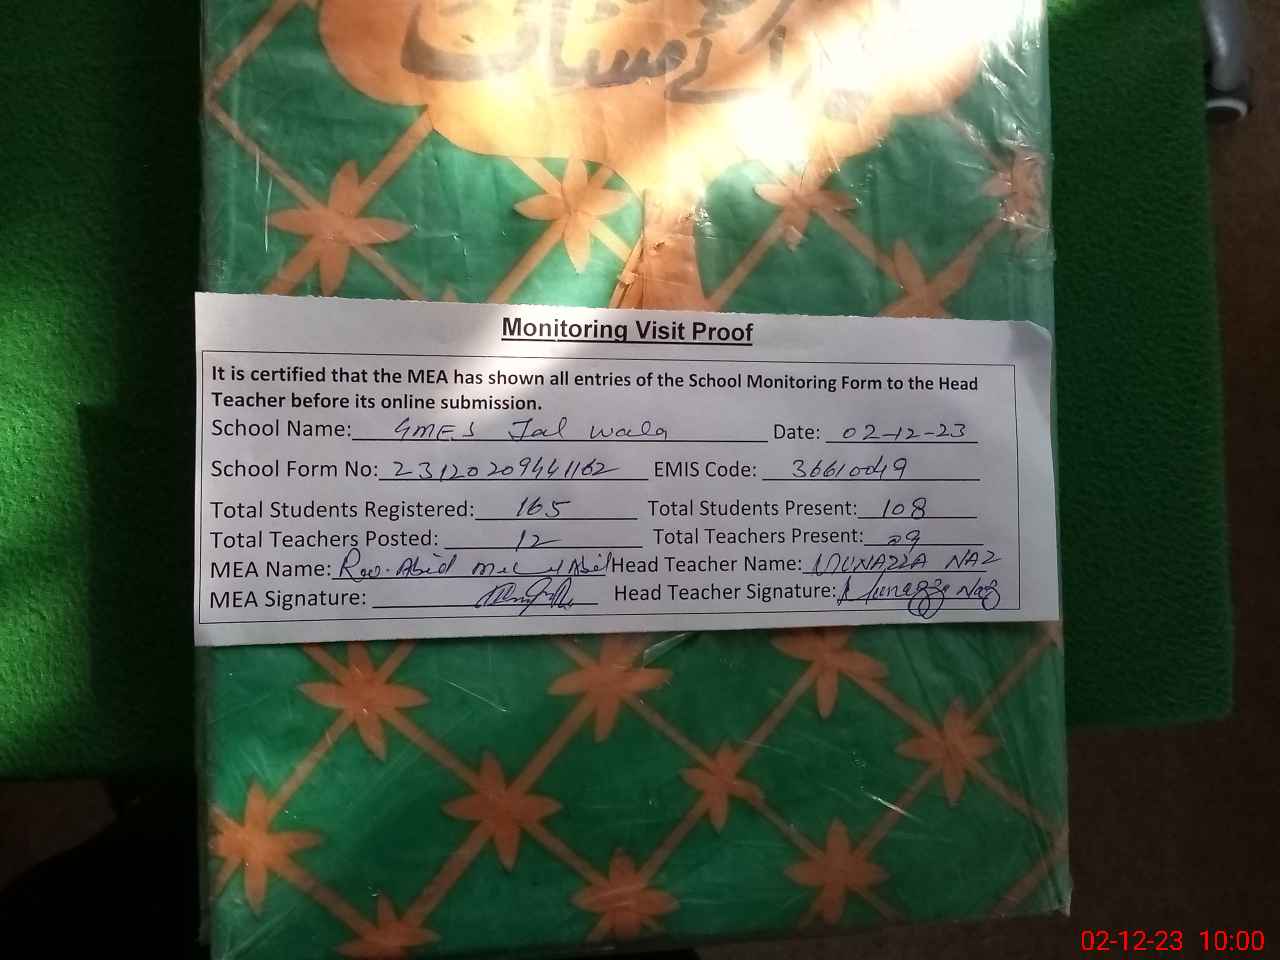 برائے مسافت
Monitoring Visit Proof
It is certified that the MEA has shown all entries of the School Monitoring Form to the Head
Teacher before its online submission.
School Name: GMES Jal wala Date: 02-12-23
School Form No: 23120209441162 EMIS Code: 36610049
Total Students Registered: 165 Total Students Present: 108
Total Teachers Posted: 12 Total Teachers Present: 09
MEA Name: Rao Abid Head Teacher Name: MUNAZZA NAZ
MEA Signature: Head Teacher Signature: Munazza Naz
02-12-23 10:00